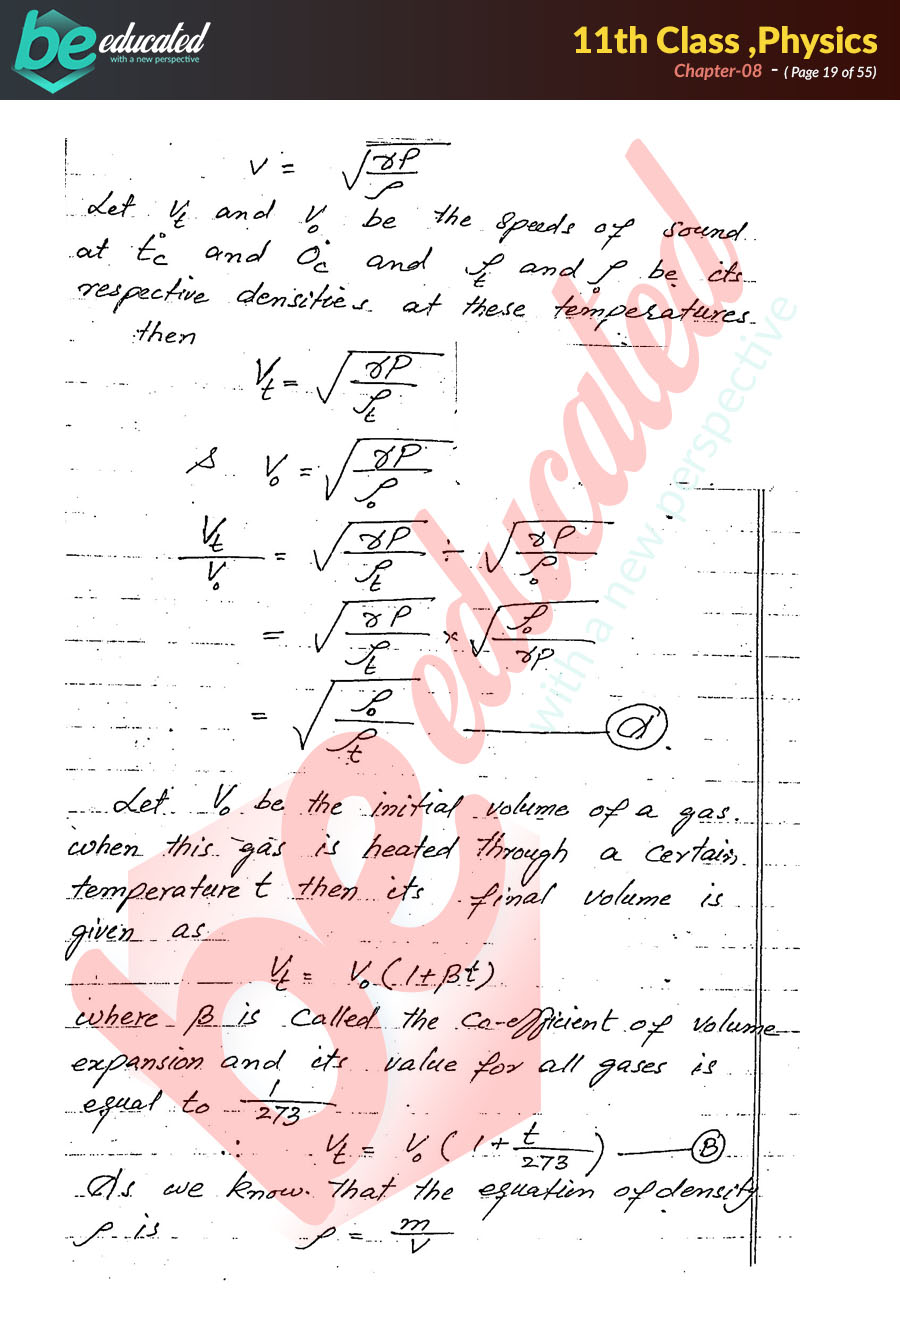 be educated
with a new perspective
11th Class ,Physics
Chapter-08 - ( Page 19 of 55)
V = √(γP/ρ)
Let Vt and V₀ be the speeds of sound
at t°c and 0°c and ρt and ρ₀ be its
respective densities at these temperatures
then
Vt = √(γP/ρt)
& V₀ = √(γP/ρ₀)
Vt/V₀ = √(γP/ρt) ÷ √(γP/ρ₀)
= √(γP/ρt) × √(ρ₀/γP)
= √(ρ₀/ρt) — (A)
Let V₀ be the initial volume of a gas.
when this gas is heated through a certain
temperature t then its final volume is
given as
Vt = V₀(1+βt)
where β is called the co-efficient of volume
expansion and its value for all gases is
equal to 1/273
∴ Vt = V₀(1+t/273) — (B)
As we know that the equation of density
ρ is ρ = m/V
be educated
with a new perspective